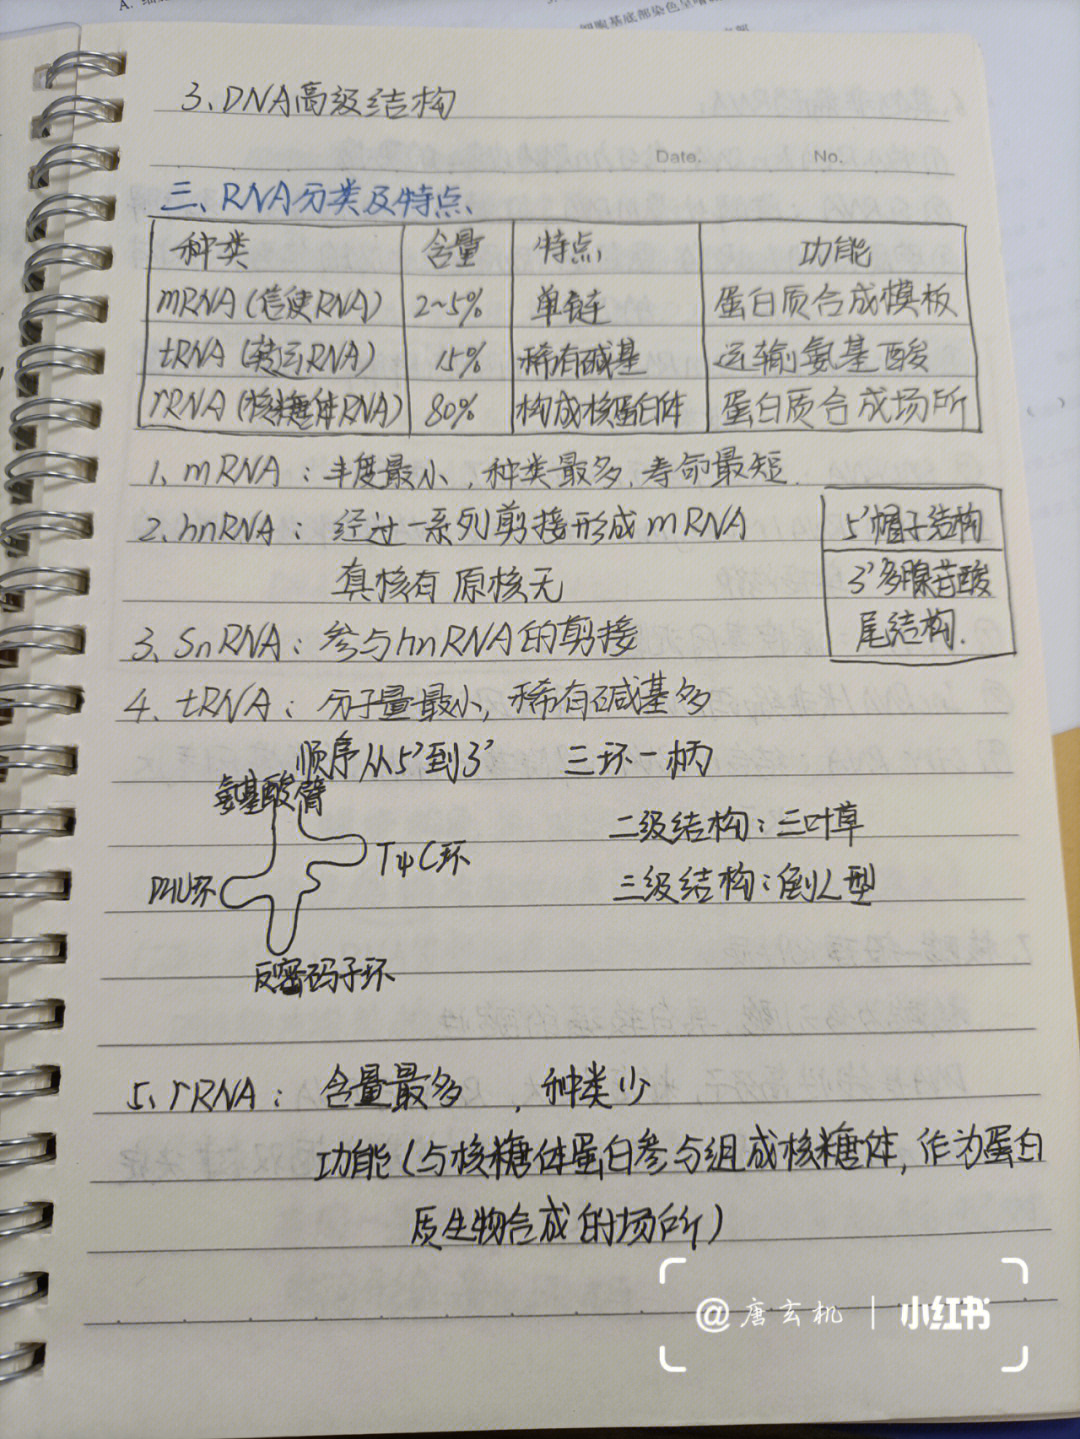 3、DNA高级结构
Date. No.
三、RNA分类及特点
种类 含量 特点 功能
mRNA(信使RNA) 2~5% 单链 蛋白质合成模板
tRNA(转运RNA) 15% 稀有碱基 运输氨基酸
rRNA(核糖体RNA) 80% 构成核蛋白体 蛋白质合成场所
1、mRNA：丰度最小，种类最多，寿命最短.
2、hnRNA：经过一系列剪接形成mRNA
真核有 原核无
5'帽子结构
3'多腺苷酸
尾结构.
3、SnRNA：参与hnRNA的剪接
4、tRNA：分子量最小，稀有碱基多
顺序从5'到3' 三环一柄
氨基酸臂
TψC环
DHU环
反密码子环
二级结构：三叶草
三级结构：倒L型
5、rRNA：含量最多，种类少
功能(与核糖体蛋白参与组成核糖体，作为蛋白
质生物合成的场所)
@唐玄机 | 小红书